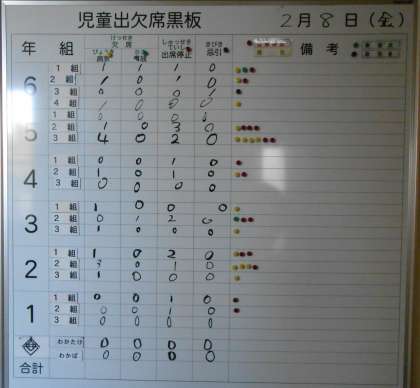 児童出欠席黒板 2月8日(金)
年 組 けっせき 欠席 びょうき 病気 事故 しゅっせきていし 出席停止 きびき 忌引 備考
6 1組 1 1 1 0
2組 1 0 1 0
3組 0 0 0 1
4組 1 0 0 0
5 1組 0 0 0 0
2組 1 0 3 0
3組 4 0 2 0
4 1組 0 0 1 0
2組 1 0 1 0
3組 0 0 0 0
3 1組 1 0 0 0
2組 0 1 2 0
3組 1 0 0 0
2 1組 1 0 2 0
2組 3 0 1 0
3組 1 0 0 0
1 1組 0 0 1 0
2組 0 0 1 0
3組 0 0 0 0
わかたけ 0 0 0 0
わかば 0 0 0 0
合計